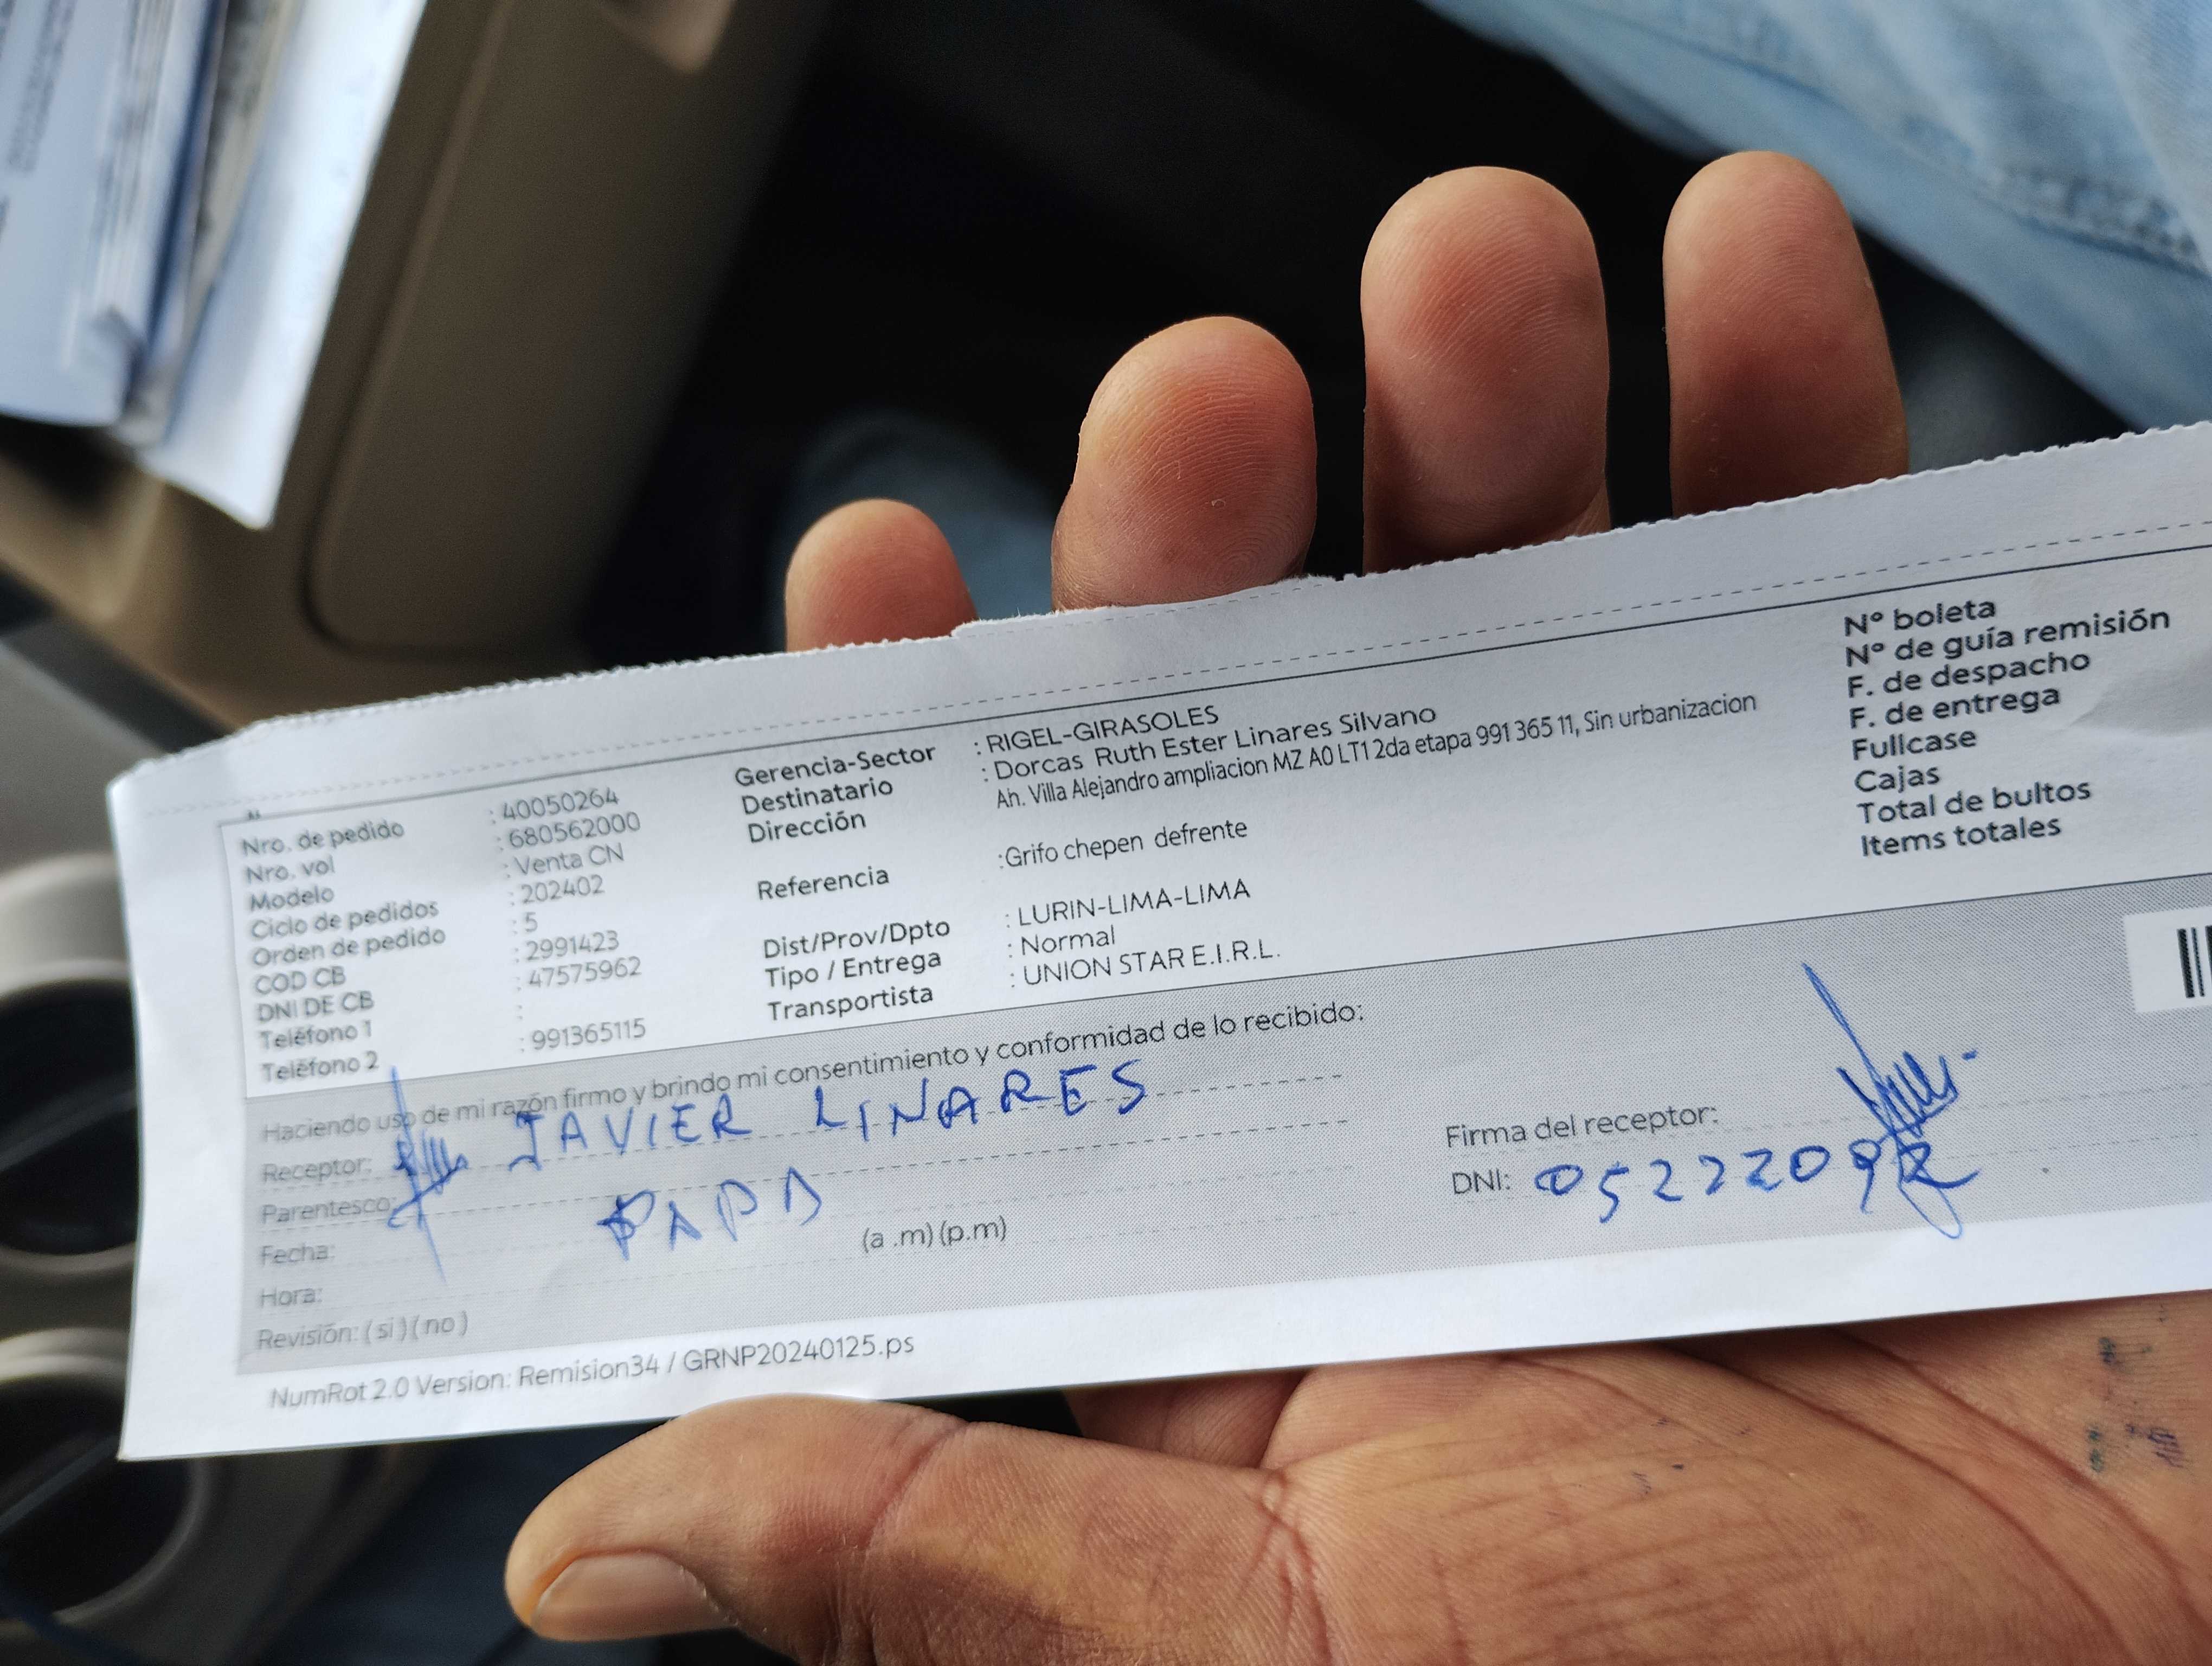 Nro. de pedido : 40050264
Nro. vol : 680562000
Modelo : Venta CN
Ciclo de pedidos : 202402
Orden de pedido : 5
COD CB : 2991423
DNI DE CB : 47575962
Teléfono 1 :
Teléfono 2 : 991365115
Gerencia-Sector : RIGEL-GIRASOLES
Destinatario : Dorcas Ruth Ester Linares Silvano
Dirección Ah. Villa Alejandro ampliacion MZ A0 LT1 2da etapa 991 365 11, Sin urbanizacion
Referencia :Grifo chepen defrente
Dist/Prov/Dpto : LURIN-LIMA-LIMA
Tipo / Entrega : Normal
Transportista : UNION STAR E.I.R.L.
Nº boleta
Nº de guía remisión
F. de despacho
F. de entrega
Fullcase
Cajas
Total de bultos
Items totales
Haciendo uso de mi razón firmo y brindo mi consentimiento y conformidad de lo recibido:
Receptor: JAVIER LINARES
Parentesco: PAPA
Fecha:
Hora: (a .m) (p.m)
Revisión: ( si ) ( no )
Firma del receptor:
DNI:
NumRot 2.0 Version: Remision34 / GRNP20240125.ps